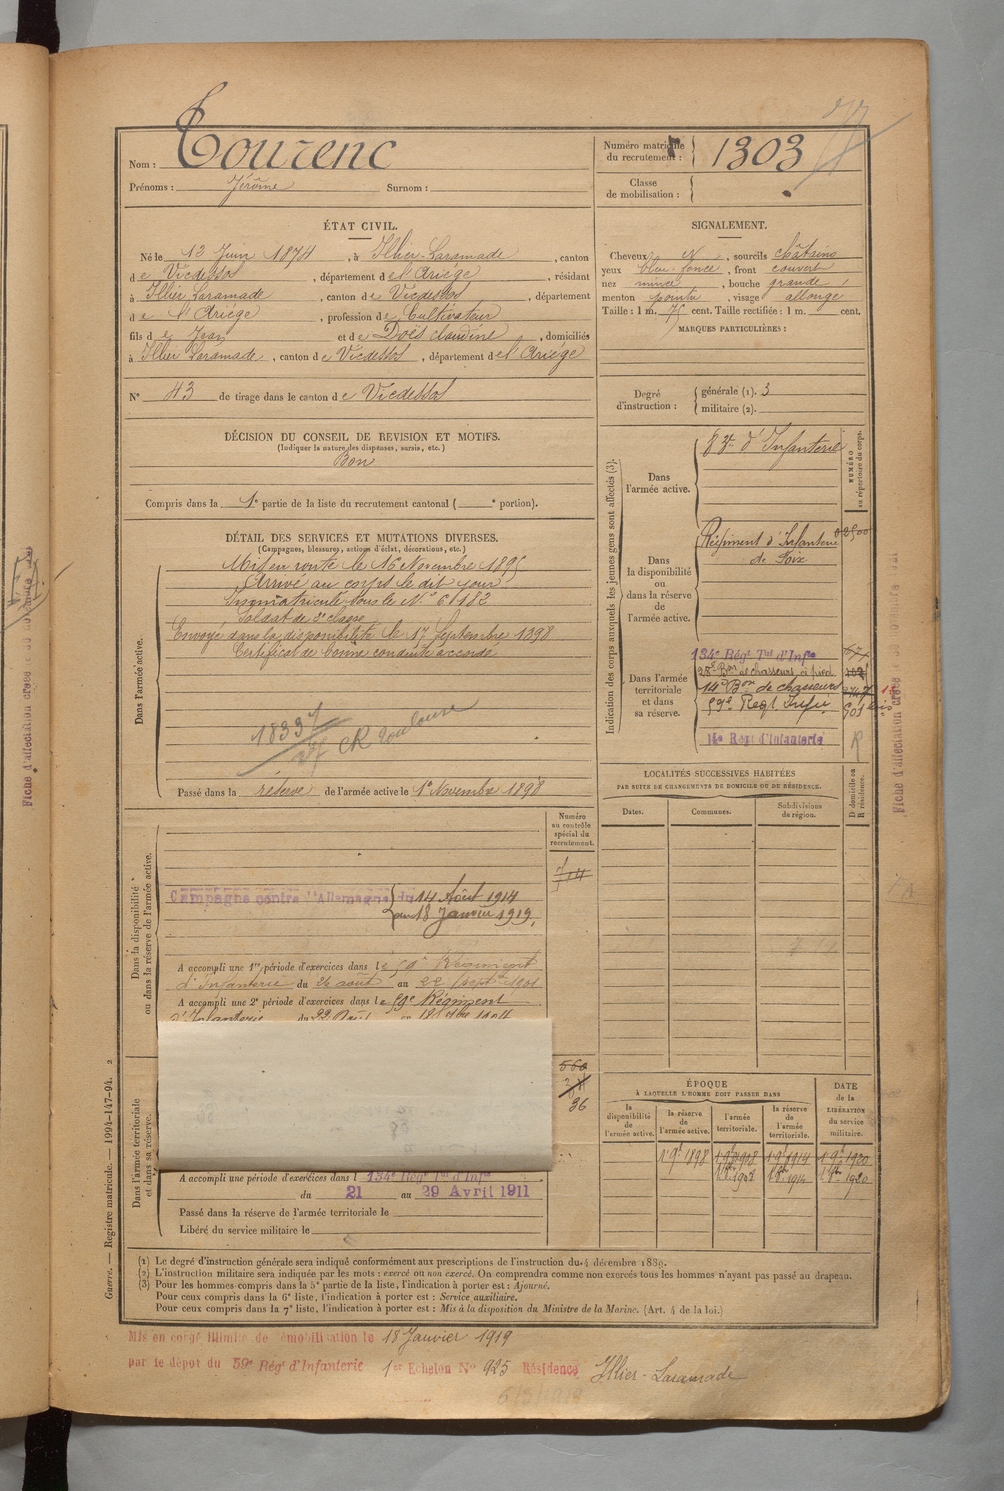 Nom : Tourenc
Prénoms : Jérôme Surnom :
Numéro matricule du recrutement : 1303
Classe de mobilisation :
ÉTAT CIVIL.
Né le 12 Juin 1874, à Illier-Laramade, canton
de Vicdessos, département de l'Ariége, résidant
à Illier Laramade, canton de Vicdessos, département
de l'Ariége, profession de Cultivateur
fils de Jean et de Doës Claudine, domiciliés
à Illier Laramade, canton de Vicdessos, département de l'Ariége
N° 43 de tirage dans le canton de Vicdessos
SIGNALEMENT.
Cheveux et, sourcils châtains
yeux bleu foncé, front couvert
nez mince, bouche grande
menton pointu, visage allongé
Taille : 1 m. 75 cent. Taille rectifiée : 1 m. cent.
MARQUES PARTICULIÈRES :
Degré d'instruction :
générale (1). 3
militaire (2).
DÉCISION DU CONSEIL DE REVISION ET MOTIFS.
(Indiquer la nature des dispenses, sursis, etc.)
Bon
Compris dans la 1e partie de la liste du recrutement cantonal ( e portion).
DÉTAIL DES SERVICES ET MUTATIONS DIVERSES.
(Campagnes, blessures, actions d'éclat, décorations, etc.)
Dans l'armée active.
Mis en route le 16 Novembre 1895
Arrivé au corps le dit jour
Immatriculé sous le N° 6182
Soldat de 2e classe
Envoyé dans la disponibilité le 17 Septembre 1898
Certificat de bonne conduite accordé
CR Toulouse
Passé dans la réserve de l'armée active le 1e Novembre 1898
Indication des corps auxquels les jeunes gens sont affectés (3).
NUMÉRO au répertoire du corps.
Dans l'armée active.
83e d'Infanterie
Dans la disponibilité ou dans la réserve de l'armée active.
Régiment d'Infanterie
de Foix
Dans l'armée territoriale et dans sa réserve.
134e Régt Tal d'Infie
28e Bon de chasseurs à pied
14e Bon de chasseurs
59e Regt Infie
14e Régt d'Infanterie
R
LOCALITÉS SUCCESSIVES HABITÉES
PAR SUITE DE CHANGEMENTS DE DOMICILE OU DE RÉSIDENCE.
Dates. Communes. Subdivisions de région. D domicile ou R résidence.
Numéro au contrôle spécial du recrutement.
714
Dans la disponibilité ou dans la réserve de l'armée active.
Campagne contre l'Allemagne du 14 Août 1914
au 18 Janvier 1919.
A accompli une 1re période d'exercices dans le 59e Régiment
d'Infanterie du 26 août au 22 Septbre 1901
A accompli une 2e période d'exercices dans le 59e Régiment
d'Infanterie
560
36
Dans l'armée territoriale et dans sa réserve.
A accompli une période d'exercices dans l 134e Régt Tal d'Infie
du 21 au 29 Avril 1911
Passé dans la réserve de l'armée territoriale le
Libéré du service militaire le
ÉPOQUE
À LAQUELLE L'HOMME DOIT PASSER DANS
la disponibilité de l'armée active. la réserve de l'armée active. l'armée territoriale. la réserve de l'armée territoriale.
DATE de la LIBÉRATION du service militaire.
1 9bre 1898 1 9bre 1908 1 9bre 1914 1 9bre 1920
1 8bre 1908 1 8bre 1914 1 8bre 1920
(1) Le degré d'instruction générale sera indiqué conformément aux prescriptions de l'instruction du 4 décembre 1889.
(2) L'instruction militaire sera indiquée par les mots : exercé ou non exercé. On comprendra comme non exercés tous les hommes n'ayant pas passé au drapeau.
(3) Pour les hommes compris dans la 5e partie de la liste, l'indication à porter est : Ajourné.
Pour ceux compris dans la 6e liste, l'indication à porter est : Service auxiliaire.
Pour ceux compris dans la 7e liste, l'indication à porter est : Mis à la disposition du Ministre de la Marine. (Art. 4 de la loi.)
Guerre. — Registre matricule. — 1994-147-94. 2
Mis en congé illimité de démobilisation le 18 Janvier 1919
par le dépôt du 59e Régt d'Infanterie 1er Echelon N° 925 Résidence Illier-Laramade